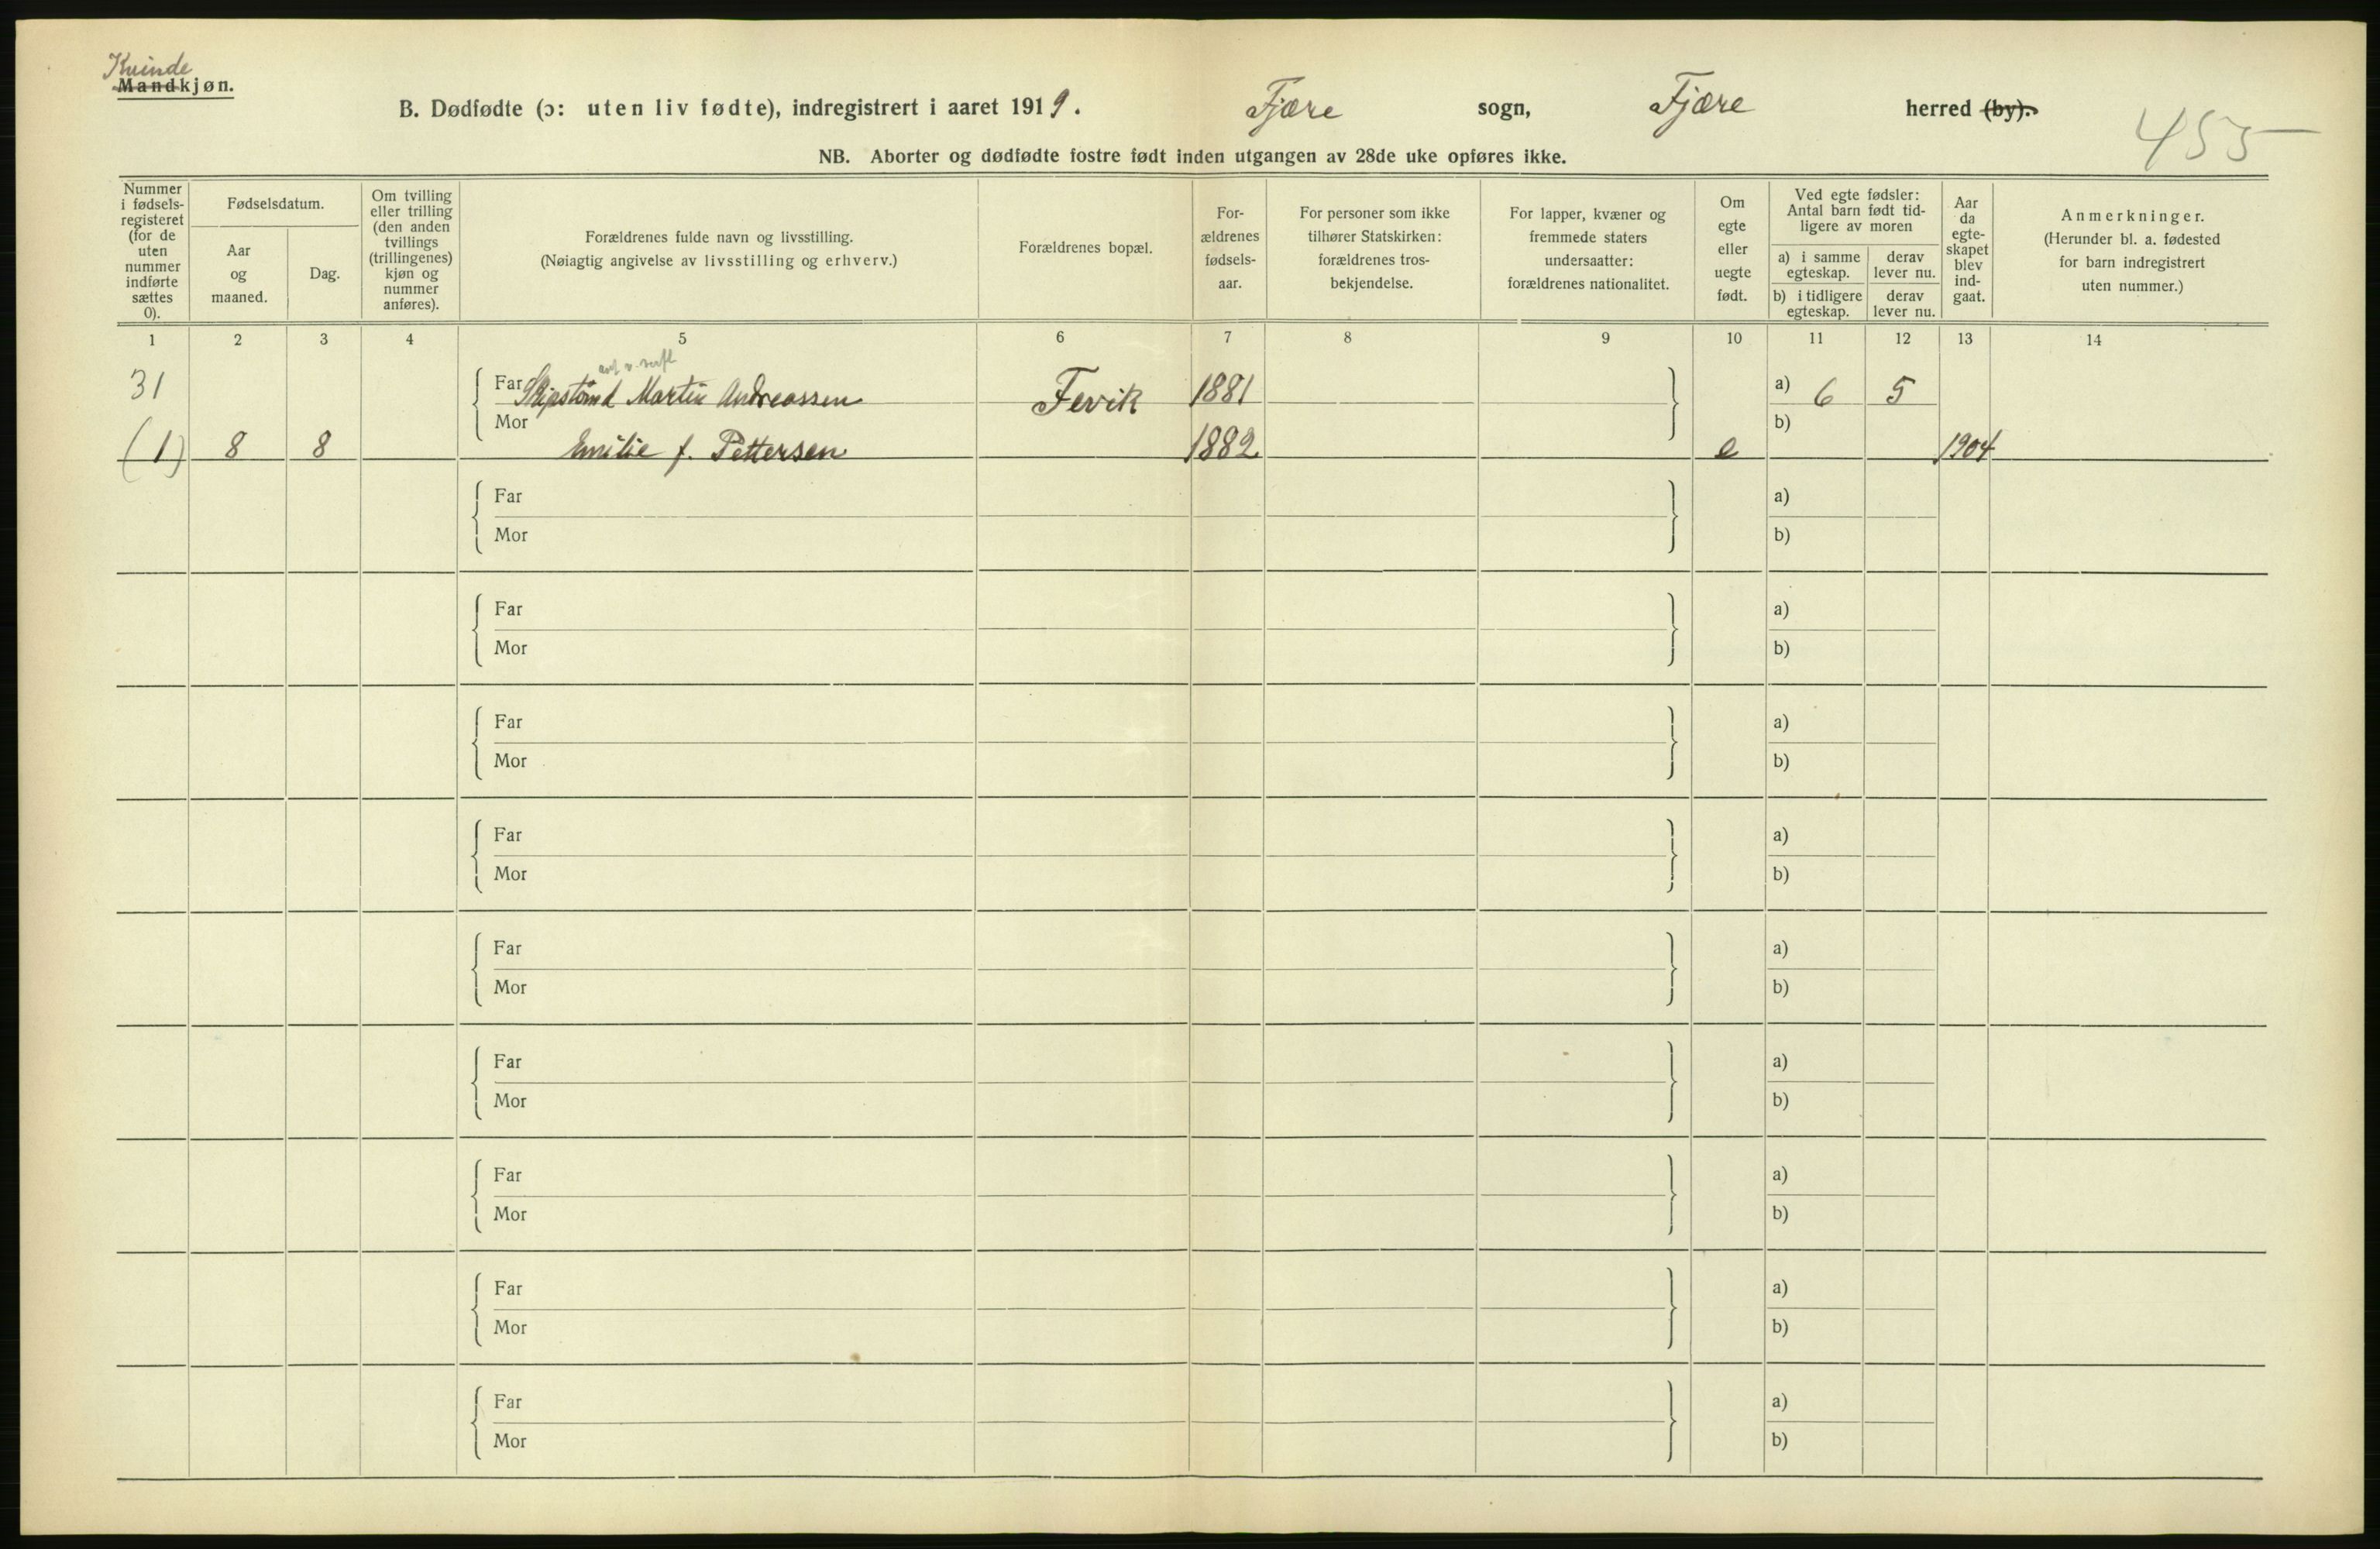 Kvinde
Mandkjøn.
B. Dødfødte (ɔ: uten liv fødte), indregistrert i aaret 1919. Fjære sogn, Fjære herred (by).
455
NB. Aborter og dødfødte fostre født inden utgangen av 28de uke opføres ikke.
Nummer i fødsels-registeret (for de uten nummer indførte sættes 0).
Fødselsdatum.
Aar og maaned.
Dag.
Om tvilling eller trilling (den anden tvillings (trillingenes) kjøn og nummer anføres).
Forældrenes fulde navn og livsstilling.
(Nøiagtig angivelse av livsstilling og erhverv.)
Forældrenes bopæl.
For-ældrenes fødsels-aar.
For personer som ikke tilhører Statskirken: forældrenes tros-bekjendelse.
For lapper, kvæner og fremmede staters undersaatter: forældrenes nationalitet.
Om egte eller uegte født.
Ved egte fødsler: Antal barn født tid-ligere av moren
a) i samme egteskap.
derav lever nu.
b) i tidligere egteskap.
derav lever nu.
Aar da egte-skapet blev ind-gaat.
Anmerkninger.
(Herunder bl. a. fødested for barn indregistrert uten nummer.)
1 2 3 4 5 6 7 8 9 10 11 12 13 14
31 Far Skipstømd Martin Andreassen Fevik 1881 a) 6 5
(1) 8 8 Mor Emilie f. Pettersen 1882 e b) 1904
Far a)
Mor b)
Far a)
Mor b)
Far a)
Mor b)
Far a)
Mor b)
Far a)
Mor b)
Far a)
Mor b)
Far a)
Mor b)
Far a)
Mor b)
Far a)
Mor b)